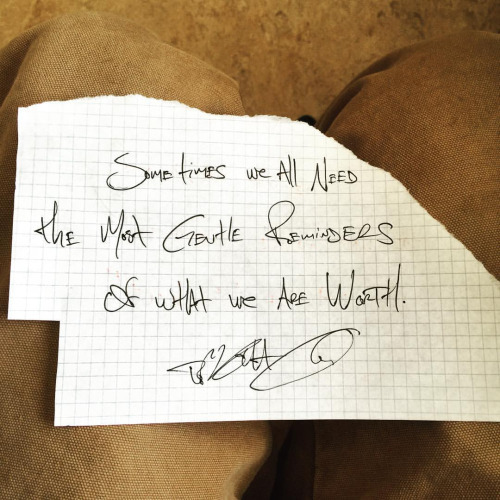 Sometimes we All Need
the Most Gentle Reminders
Of what we Are Worth.